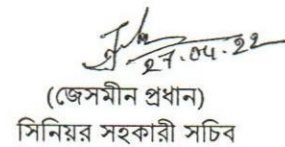 27.04.22
(জেসমীন প্রধান)
সিনিয়র সহকারী সচিব